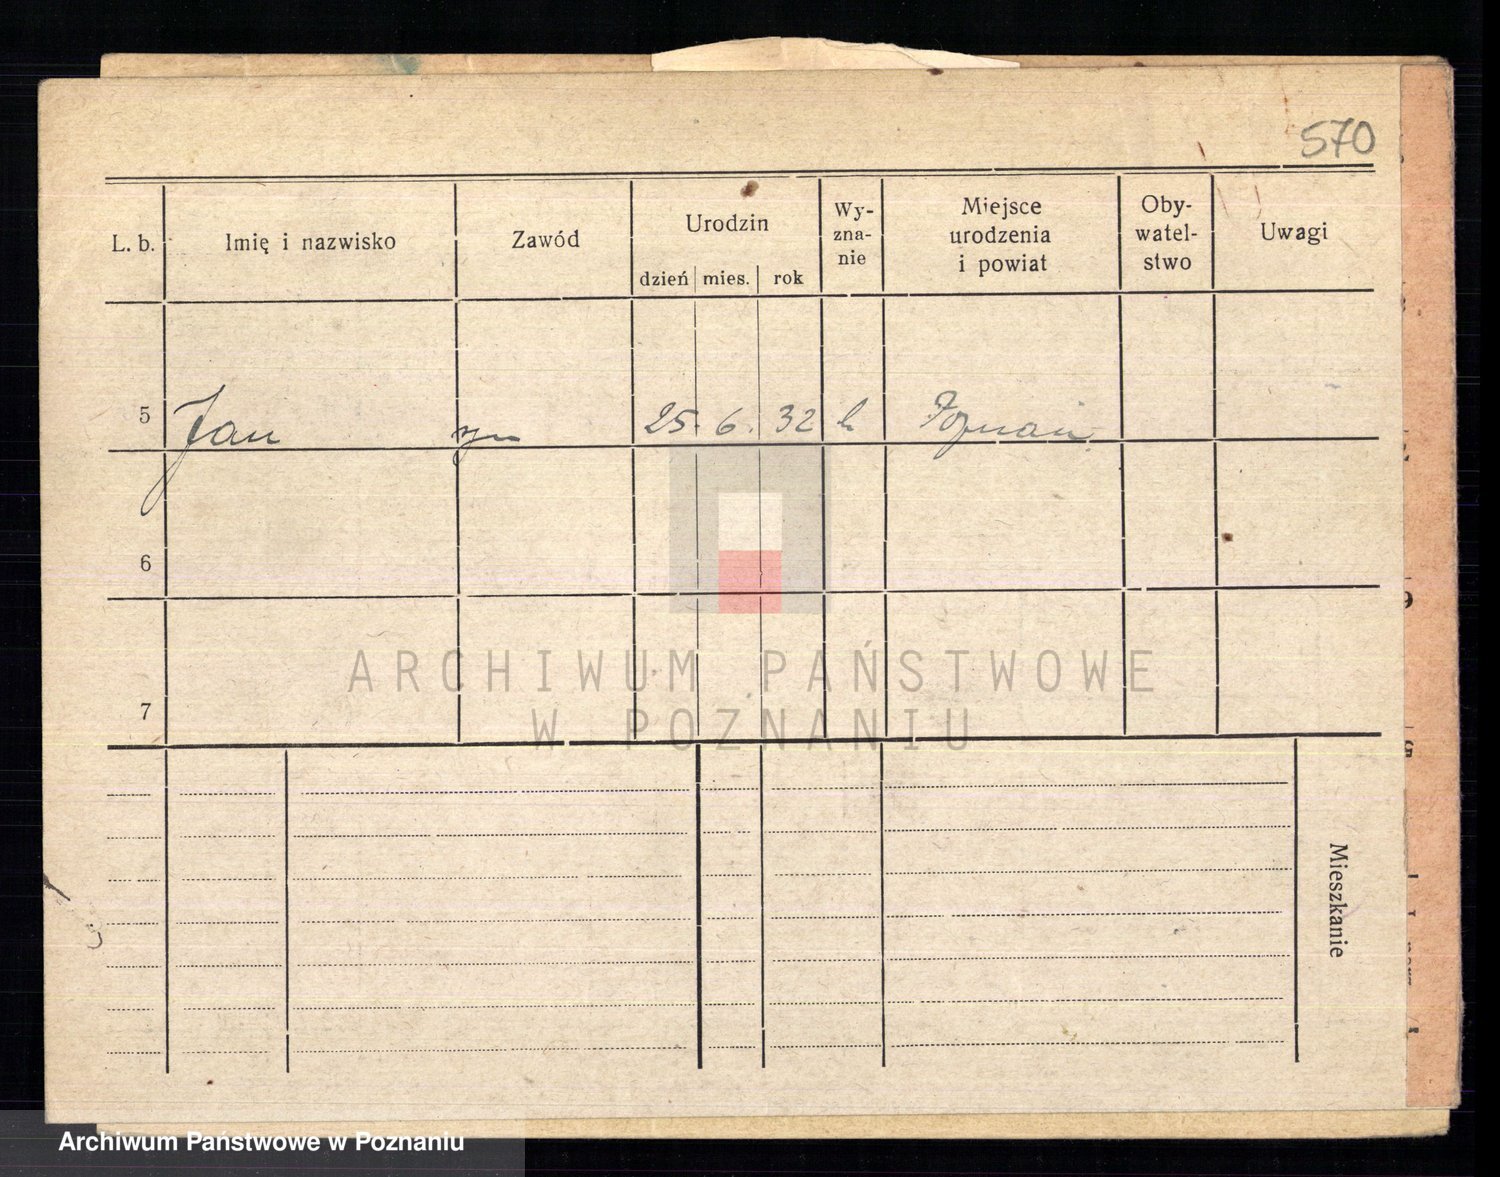 570
L. b. Imię i nazwisko Zawód Urodzin dzień mies. rok Wy-zna-nie Miejsce urodzenia i powiat Oby-watel-stwo Uwagi
5 Jan syn 25. 6. 32 k Poznań
6
7
Mieszkanie
ARCHIWUM PAŃSTWOWE
W POZNANIU
Archiwum Państwowe w Poznaniu